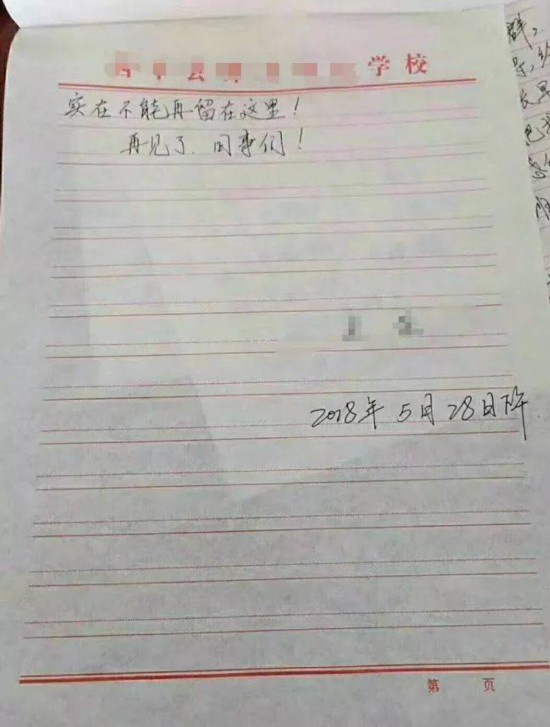 学校
实在不能再留在这里！
再见了．同事们！
2018年5月28日下午
第 页